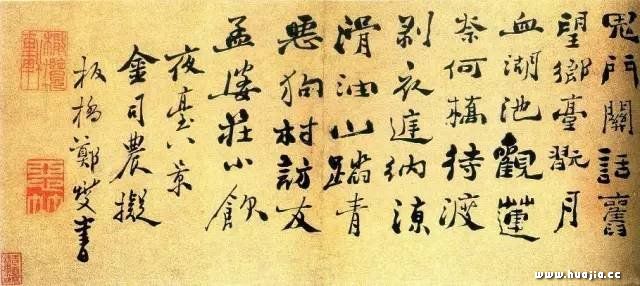 鬼門關話舊
望鄉臺翫月
血湖池觀蓮
奈何橋待渡
剝衣納涼
滑油山踏青
惡狗村訪友
孟婆莊小飲
夜臺八景
金司農擬
板橋鄭燮書
www.huajia.cc